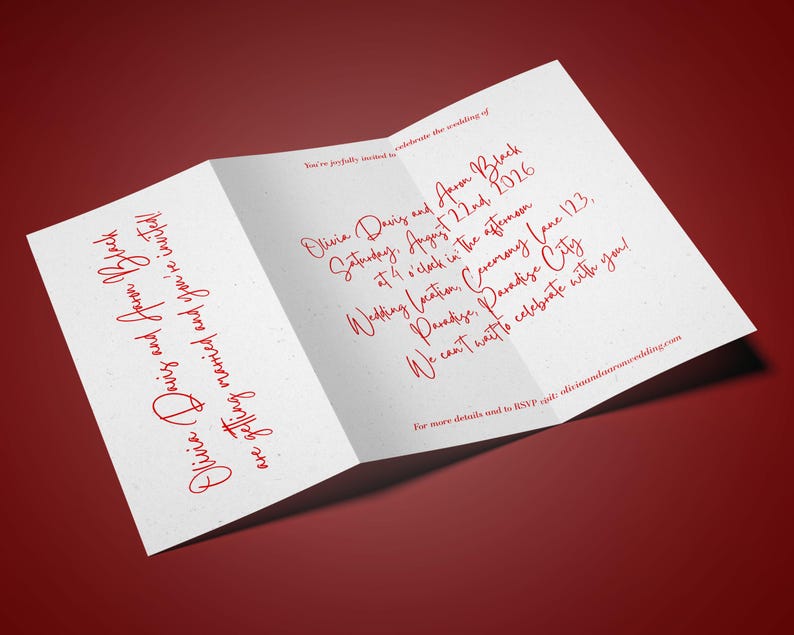 Olivia Davis and Aaron Black
are getting married and you're invited!
You're joyfully invited to celebrate the wedding of
Olivia Davis and Aaron Black
Saturday, August 22nd, 2026
at 4 o'clock in the afternoon
Wedding Location, Ceremony Lane 123,
Paradise, Paradise City
We can't wait to celebrate with you!
For more details and to RSVP visit: oliviaandaaronwedding.com